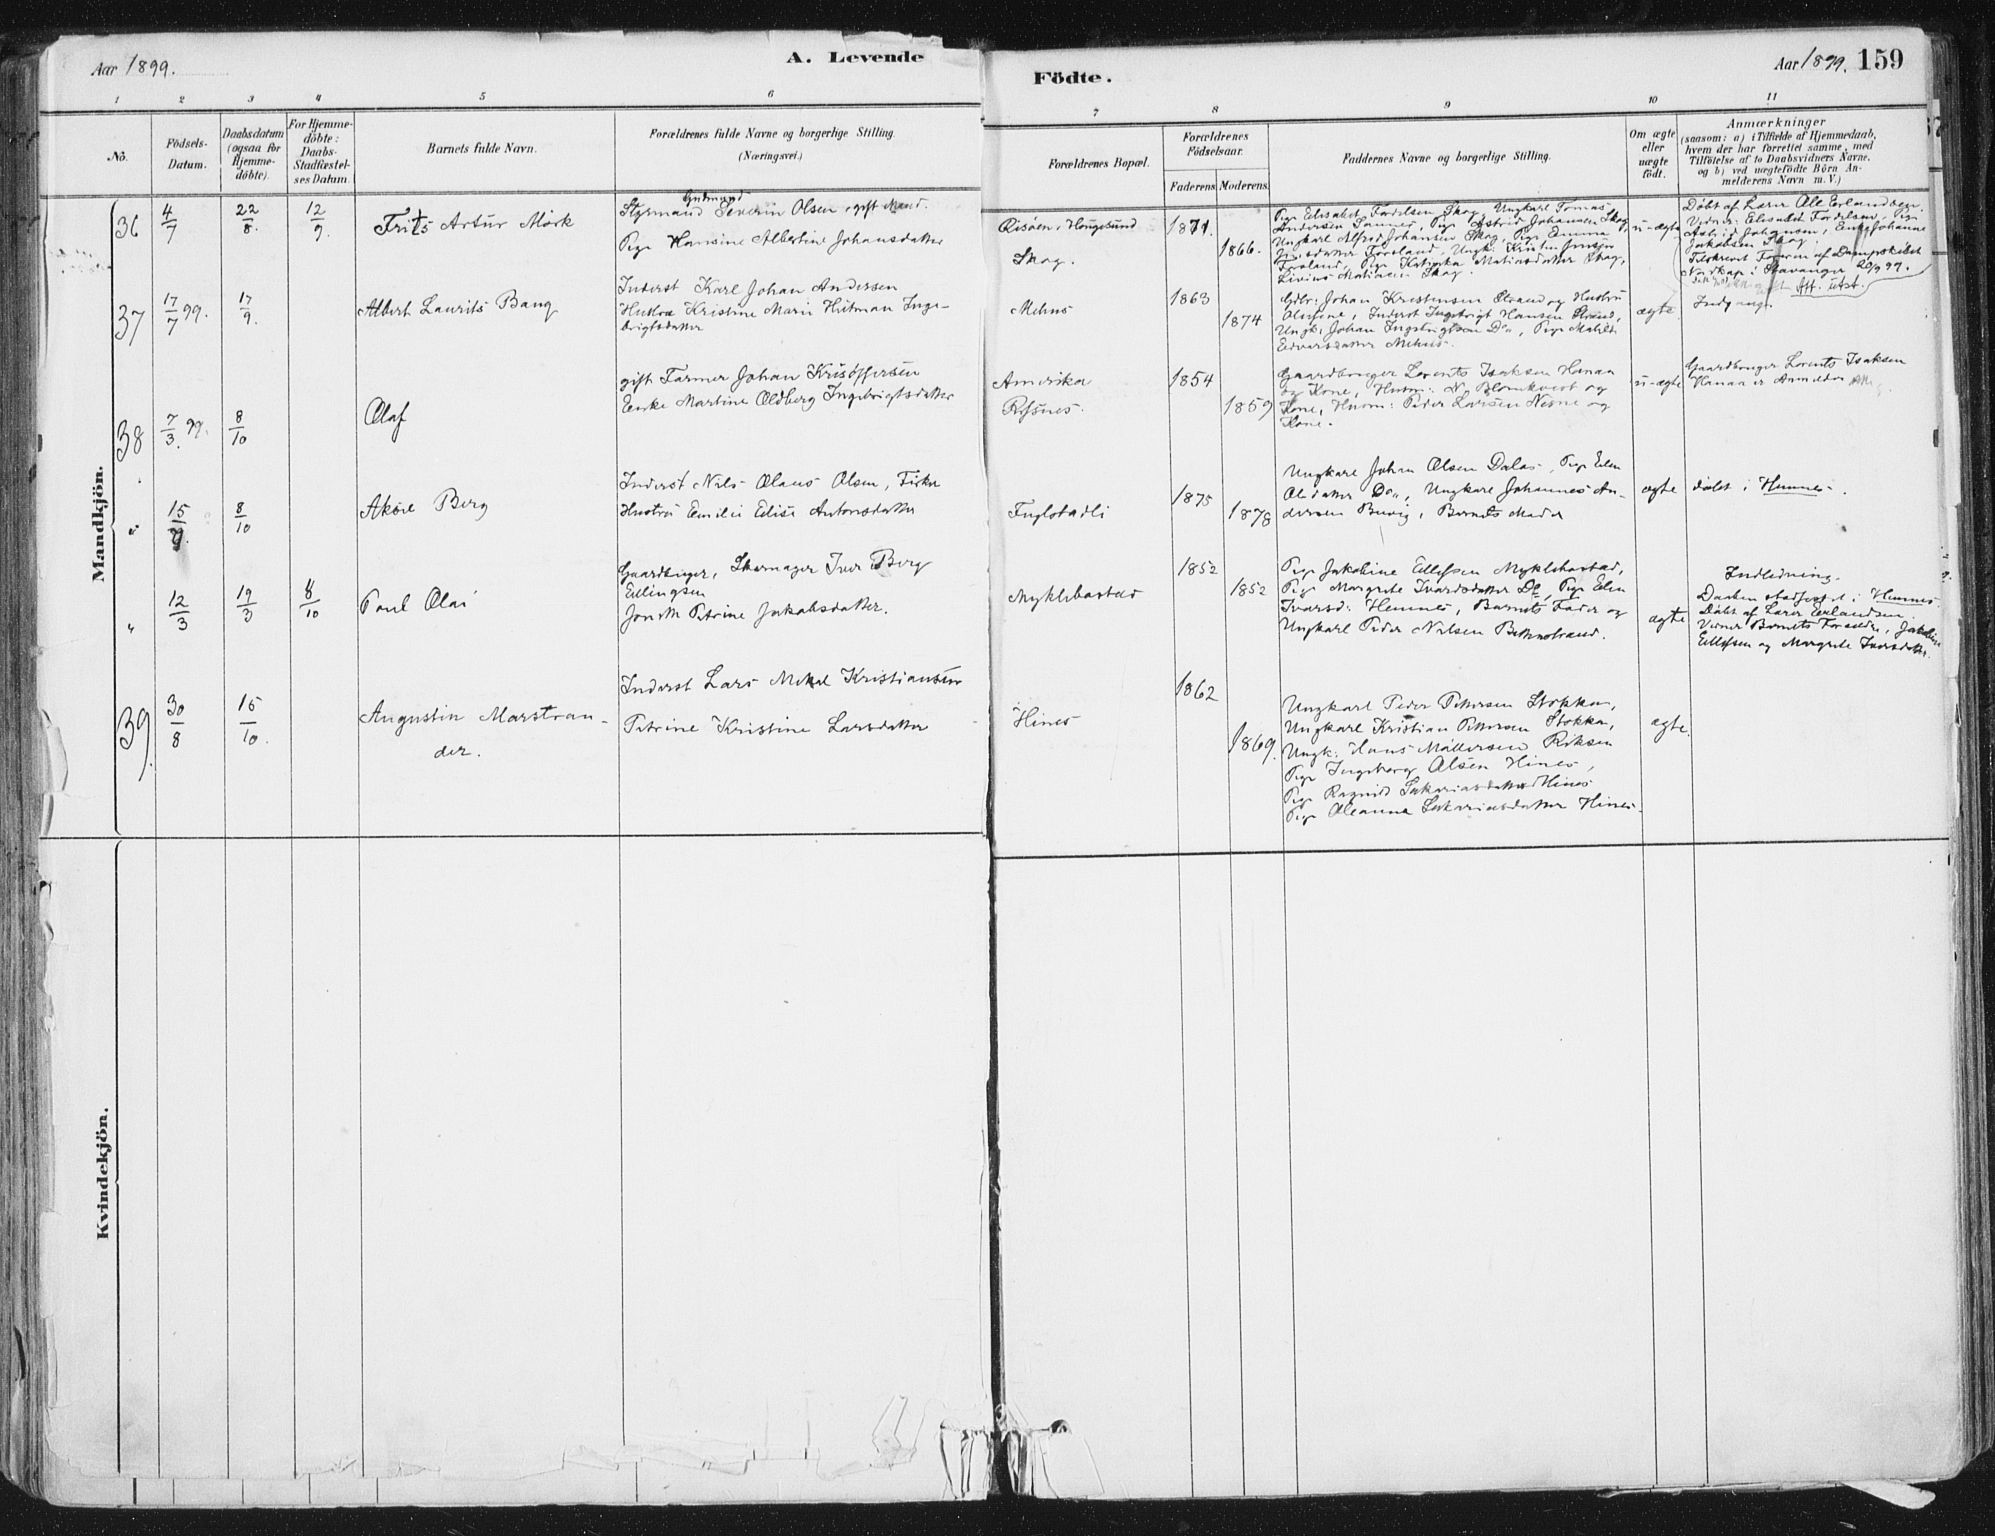 Aar 1899.
A. Levende
Födte.
Aar 1899. 159
1 2 3 4 5 6 7 8 9 10 11
No.
Födsels-Datum.
Daabsdatum (ogsaa for Hjemme-döbte).
For Hjemme-döbte: Daabs-Stadfæstel-ses Datum.
Barnets fulde Navn.
Forældrenes fulde Navne og borgerlige Stilling.
(Næringsvei.)
Forældrenes Bopæl.
Forældrenes Födselsaar.
Faderens. Moderens.
Faddernes Navne og borgerlige Stilling.
Om ægte eller uægte födt.
Anmærkninger
(saasom: a) i Tilfælde af Hjemmedaab,
hvem der har forrettet samme, med
Tilföielse af to Daabsvidners Navne.
og b) ved uægtefödte Börn An-
melderens Navn m. V.)
Mandkjön.
36 4/7 22/8. 12/9. Frits Artur Mörk
Styrmand Severin Olsen, gift Mand.
Pige Hansine Albertine Johansdatter
Risöen, Haugesund
Skog.
1871.
1866.
Pige Elisabet Fordelsen Skog, Ungkarl Tomas
Andersen Sannes, Pige Astrid Johansen Skog,
Ungkarl Alfred Johansen Skog, Pige Emma
Forsland, Pige Katinka Matiasdatter Skog,
Livius Matiasen Skog.
u-ægte
Döbt af Lærer Ole Erlandsen.
Vidner: Elisabet Fordelsen, Pige
Astrid Johansen, Enke Johanne
Jakobsen Skog.
Tilskrevet Föreren af Dampskibet
Nordkap i Stavanger 20/9 99.
37 17/7 99. 17/9. Albert Laurits Bang
Inderst Karl Johan Andersen
Hustru Kristine Marie Hutman Inge-
brigtsdatter
Mehus
1863
1874
Gdbr: Johan Kristensen Strand og Hustru
Olufine, Inderst Ingebrigt Hansen Strand,
Ungk: Johan Ingebrigtsen Do, Pige Matilde
Edvardsdatter Mehus.
ægte.
Indgang.
38 7/3. 99. 8/10 Olaf
gift Farmer Johan Kristoffersen
Enke Martine Oldberg Ingebrigtsdatter
Amerika
Refsnes.
1854
1859
Gaardbruger Lorents Isaksen Hanaa
og Kone, Husm: N. Blomkvist og
Kone, Husm: Peder Larsen Nesne og
Kone.
u-ægte
Gaardbruger Lorents Isaksen
Hanaa er Anmelder
" 15/9. 8/10 Aköre Berg
Inderst Nils Olaus Olsen, Fisker
Hustru Emilie Elise Antonsdatter
Fuglstadli
1875
1878
Ungkarl Johan Olsen Dalas, Pige Elen
Olsdatter Do, Ungkarl Johannes An-
dersen Buvig, Barnets Moder
ægte
döbt i Hemnes.
" 12/3 19/3 8/10 Paul Olai
Gaardbruger, Skomager Iver Berg
Ellingsen
Jonette Petrine Jakobsdatter.
Myklebostad
1852
1852
Pige Jakobine Ellefsen Myklebostad,
Pige Margrete Ivarsdatter Do, Pige Elen
Ivarsd: Hemnes, Barnets Fader og
Ungkarl Peder Nilsen Botnestrand.
ægte
Indledning.
Daaben stadfæstet i Hemnes.
Döbt af Lærer Erlandsen.
Vidner Barnets Forældre, Jakobine
Ellefsen og Margrete Ivarsdatter.
39. 30/8 15/10. Augustin Marstran-
der.
Inderst Lars Mekal Kristiansen
Petrine Kristine Larsdatter
Hines
1862
1869.
Ungkarl Peder Pettersen Stokka,
Ungkarl Kristian Pettersen Stokka,
Ungk: Hans Möllersen Riksen
Pige Ingeborg Olsen Hines,
Pige Ragnild Sakariasdatter Hines
Pige Oleanna Sakariasdatter Hines.
ægte.
Kvindekjön.